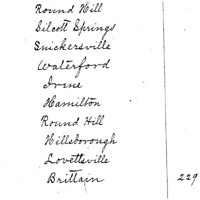 Round Hill
Silcott Springs
Snickersville
Waterford
Irene
Hamilton
Round Hill
Hillsborough
Lovettsville
Brittain 229